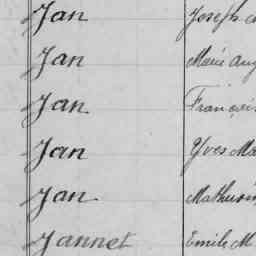 Jan Joseph
Jan Marie
Jan
Jan Yves
Jan Mathurin
Jannet Emile M